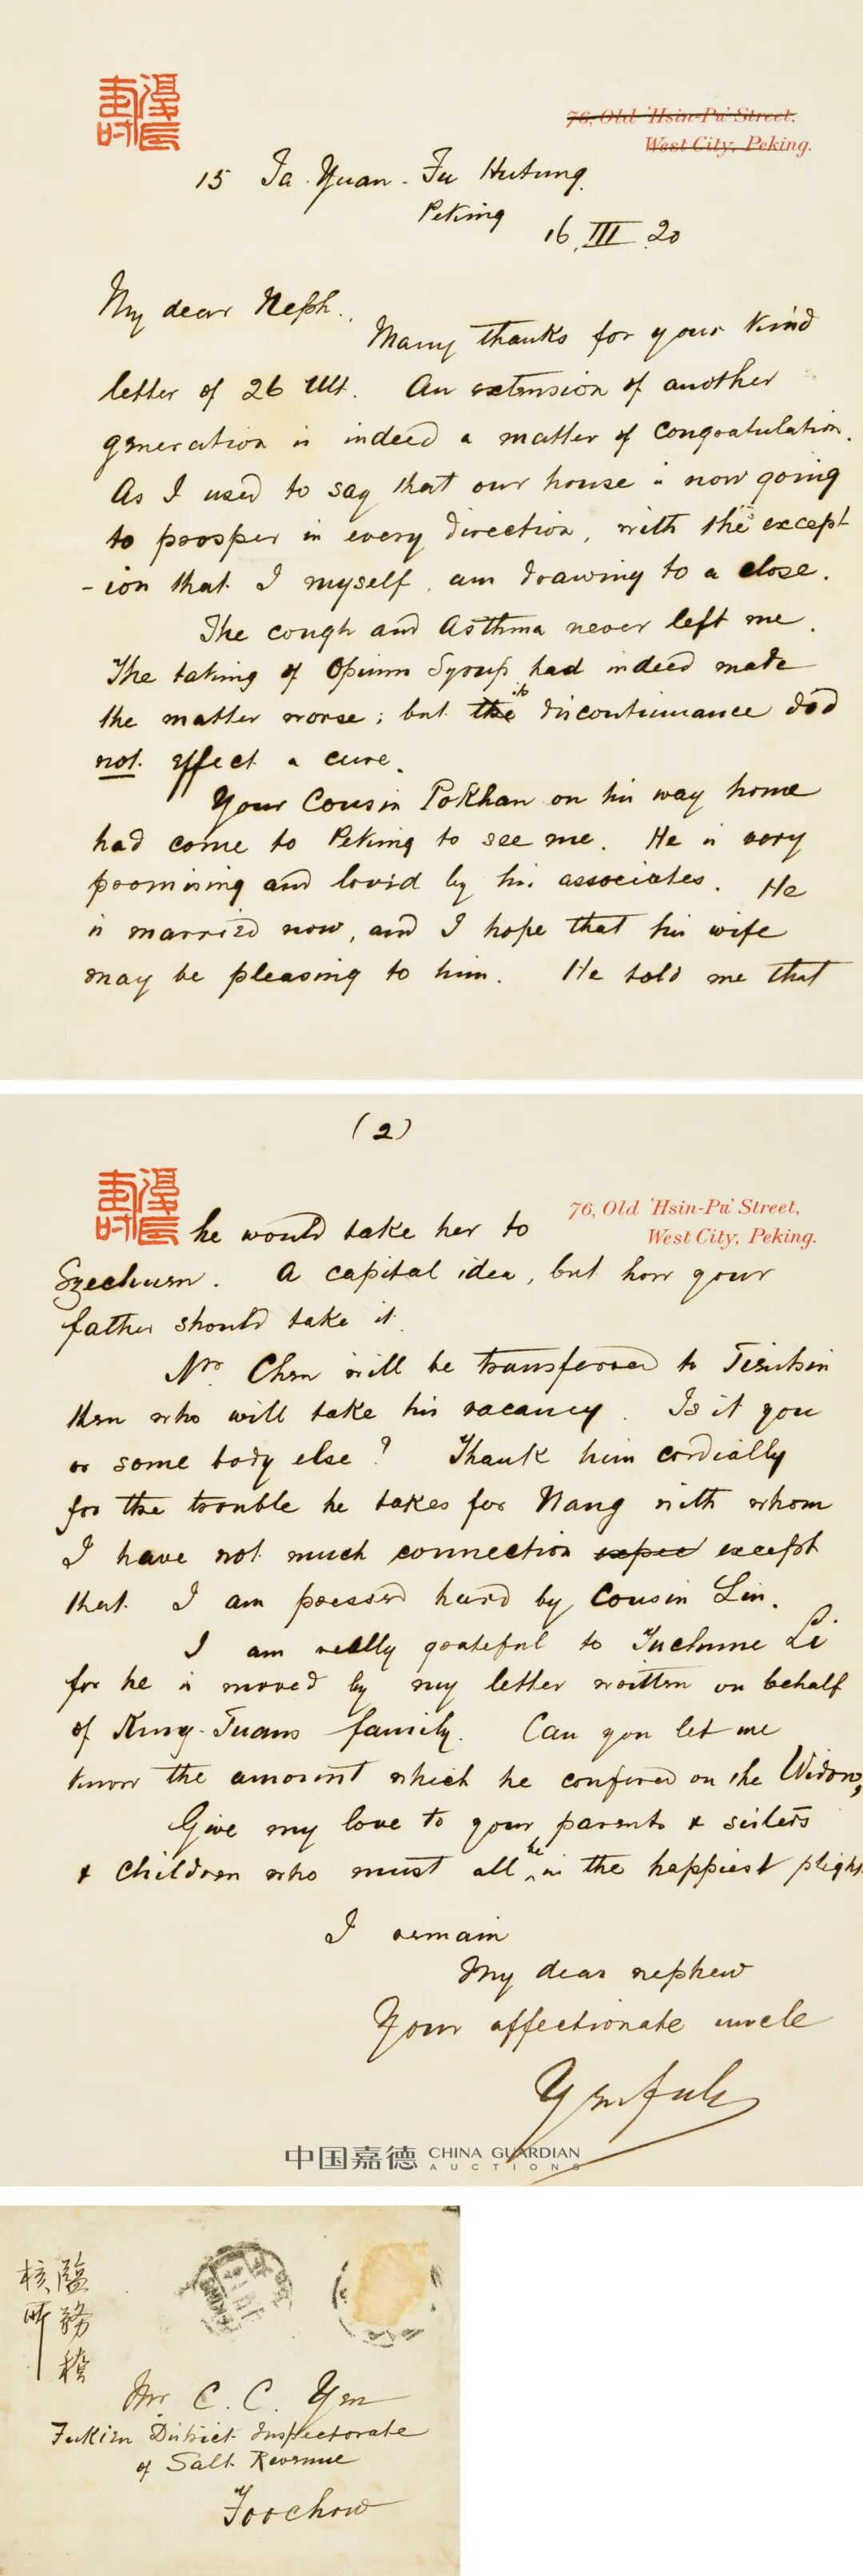 76, Old 'Hsin-Pu' Street,
West City, Peking.
15 Ta. Yuan-Fu Hutung.
Peking
16. III. 20
My dear Neph.
Many thanks for your kind
letter of 26 Ult. An extension of another
generation is indeed a matter of congratulation.
As I used to say that our house is now going
to prosper in every direction, with the except
-ion that I myself am drawing to a close.
The cough and Asthma never left me.
The taking of Opium Syrup had indeed made
the matter worse; but the its discontinuance did
not effect a cure.
Your Cousin PoKhan on his way home
had come to Peking to see me. He is very
promising and lovid by his associates. He
is married now, and I hope that his wife
may be pleasing to him. He told me that
(2)
76, Old 'Hsin-Pu' Street,
West City, Peking.
he would take her to
Szechuen. A capital idea, but how your
father should take it.
Mr Chen will be transferred to Tientsin
then who will take his vacancy. Is it you
or some body else? Thank him cordially
for the trouble he takes for Nang with whom
I have not much connection except
that I am pressed hard by Cousin Lin.
I am really grateful to Li
for he is moved by my letter written on behalf
of Kung-Tuans family. Can you let me
know the amount which he confired on the Widow,
Give my love to your parents & sisters
& children who must all be in the happiest plight
I remain
My dear nephew
Your affectionate uncle
Yenfuh
中国嘉德 CHINA GUARDIAN
AUCTIONS
鹽務稽
核所
Mr. C. C. Yen
Fukien District Inspectorate
of Salt Revenue
Foochow